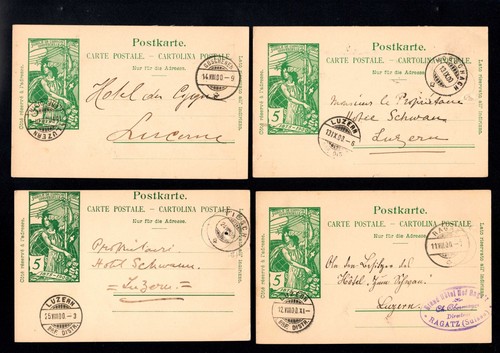 Postkarte.
CARTE POSTALE. — CARTOLINA POSTALE.
Nur für die Adresse.
Côté réservé à l'adresse.
Lato riservato all' indirizzo.
5
14.VIII.00-9
LUZERN
Hôtel du Cygne
Lucerne
Postkarte.
CARTE POSTALE. — CARTOLINA POSTALE.
Nur für die Adresse.
Côté réservé à l'adresse.
Lato riservato all' indirizzo.
5
LUZERN
Monsieur le Propriétaire
Schwan
Luzern
Postkarte.
CARTE POSTALE. — CARTOLINA POSTALE.
Nur für die Adresse.
Côté réservé à l'adresse.
Lato riservato all' indirizzo.
5
Hotel Schwan
Luzern
LUZERN
BRF. DISTR.
Postkarte.
CARTE POSTALE. — CARTOLINA POSTALE.
Nur für die Adresse.
Côté réservé à l'adresse.
Lato riservato all' indirizzo.
5
RAGAZ
An den Besitzer des
Hôtel "zum Schwan"
Luzern.
LUZERN
BRF. DISTR.
Grand Hôtel Hof Ragaz
RAGATZ